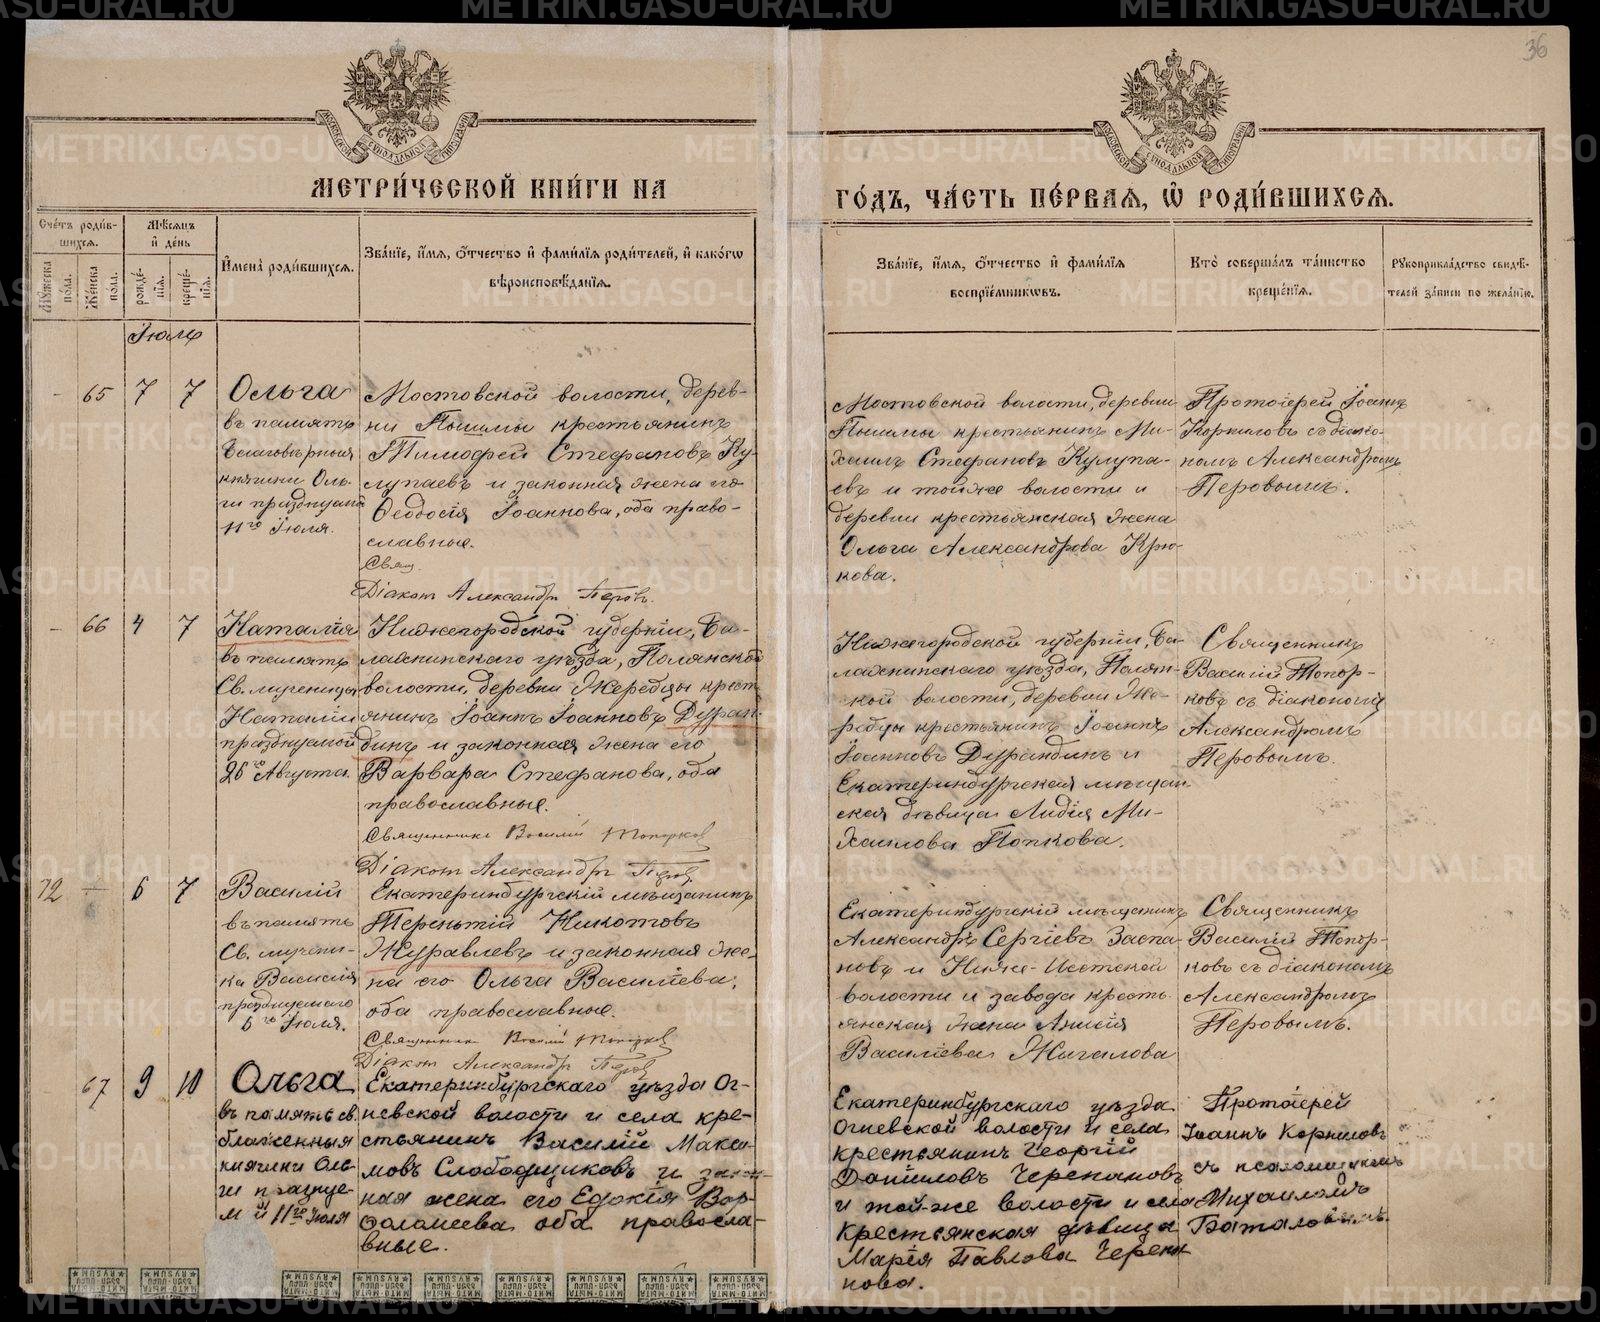 36
МОСКОВСКОЙ СѴНОДАЛЬНОЙ ТИПОГРАФІИ
МОСКОВСКОЙ СѴНОДАЛЬНОЙ ТИПОГРАФІИ
МЕТРИ́ЧЕСКОЙ КНИ́ГИ НА
ГО́ДЪ, ЧА́СТЬ ПЕ́РВАЯ, Ѡ҆ РОДИ́ВШИХСЯ.
Сче́тъ роди́вшихся.
Му́жеска по́ла.
Же́нска по́ла.
Мѣ́сяцъ и҆ де́нь
рожде́нїя.
креще́нїя.
И҆мена̀ роди́вшихся.
Зва́нїе, и҆́мя, ѻ҆́тчество и҆ фами́лїя роди́телей, и҆ како́гѡ
вѣроисповѣ́данїя.
Зва́нїе, и҆́мя, ѻ҆́тчество и҆ фами́лїя
воспрїе́мникѡвъ.
Кто̀ соверша́лъ та́инство
креще́нїя.
Рꙋкоприкла́дство свидѣ́-
телей за́писи по жела́нїю.
Іюль
- 65 7 7
Ольга
въ память
Благовѣрныя
княгини Оль-
ги празднуемой
11го Іюля.
Мостовской волости, дерев-
ни Пышмы крестьянинъ
Тимофей Стефановъ Ку-
лупаевъ и законная жена его
Ѳеодосія Іоаннова, оба право-
славные.
Свящ.
Діаконъ Александръ Перовъ.
Мостовской волости, деревни
Пышмы крестьянинъ Ми-
хаилъ Стефановъ Кулупа-
евъ и той же волости и
деревни крестьянская жена
Ольга Александрова Крю-
кова.
Протоіерей Іоаннъ
Корниловъ съ діако-
номъ Александромъ
Перовымъ.
- 66 4 7
Наталія
въ память
Св. мученицы
Наталіи
празднуемой
26го Августа.
Нижегородской губерніи, Ба-
лахнинскаго уѣзда, Полянской
волости, деревни Жеребцы крест-
янинъ Іоаннъ Іоанновъ Дуран-
динъ и законная жена его
Варвара Стефанова, оба
православные.
Священникъ Василій Топорковъ
Діаконъ Александръ Перовъ
Нижегородской губерніи, Ба-
лахнинскаго уѣзда, Полян-
кой волости, деревни Же-
ребцы крестьянинъ Іоаннъ
Іоанновъ Дурандинъ и
Екатеринбургская мѣщан-
ская дѣвица Лидія Ми-
хаилова Попкова.
Священникъ
Василій Топор-
ковъ съ діакономъ
Александромъ
Перовымъ.
72 - 6 7
Василій
въ память
Св. мучени-
ка Василія
празднуемаго
6го Іюля.
Екатеринбургскій мѣщанинъ
Терентій Никитовъ
Журавлевъ и законная же-
на его Ольга Василіева,
оба православные.
Священникъ Василій Топорковъ
Діаконъ Александръ Перовъ
Екатеринбургскій мѣщанинъ
Александръ Сергіевъ Заспа-
новъ и Ниже-Исетской
волости и завода кресть-
янская жена Анисія
Василіева Жигалова
Священникъ
Василій Топор-
ковъ съ діакономъ
Александромъ
Перовымъ.
67 9 10
Ольга
въ память св.
блаженныя
княгини Оль-
ги празнуе-
м й 11го Іюля
Екатеринбургскаго уѣзда Ог-
невской волости и села кре-
стьянинъ Василій Макси-
мовъ Слободщиковъ и закон-
ная жена его Едокія Вар-
ѳоломеева оба правосла-
вные.
Екатеринбургскаго уѣзда
Огневской волости и села
крестьянинъ Георгій
Даниловъ Черепановъ
и той-же волости и села
крестьянская дѣвица
Марія Павлова Черепа-
нова.
Протоіерей
Іоаннъ Корниловъ
съ псаломщикомъ
Михаиломъ
Баталовымъ.
METRIKI.GASO-URAL.RU